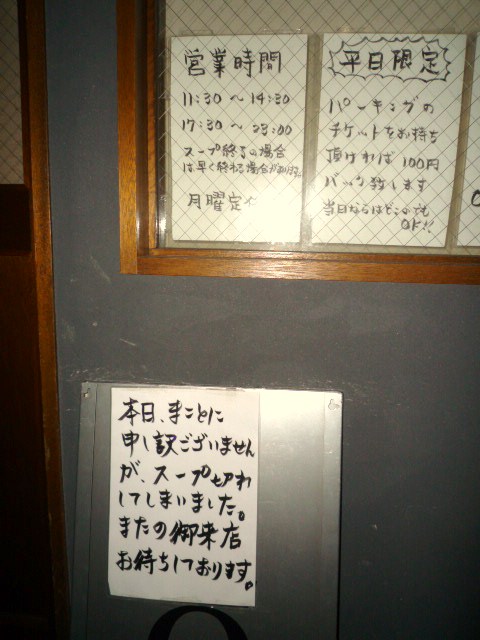 営業時間
11:30〜14:30
17:30〜23:00
スープ終了の場合
は早く終れる場合があります。
月曜定休
平日限定
パーキングの
チケットをお持ち
頂ければ100円
バック致します
当日ならばどこでも
OK!!
本日、まことに
申し訳ございません
が、スープ切れ
してしまいました。
またの御来店
お待ちしております。